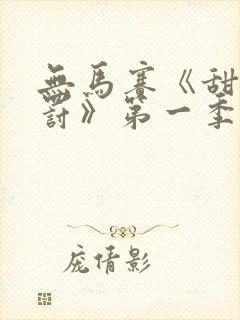 無馬賽《甜
討》第一季
庞倩影